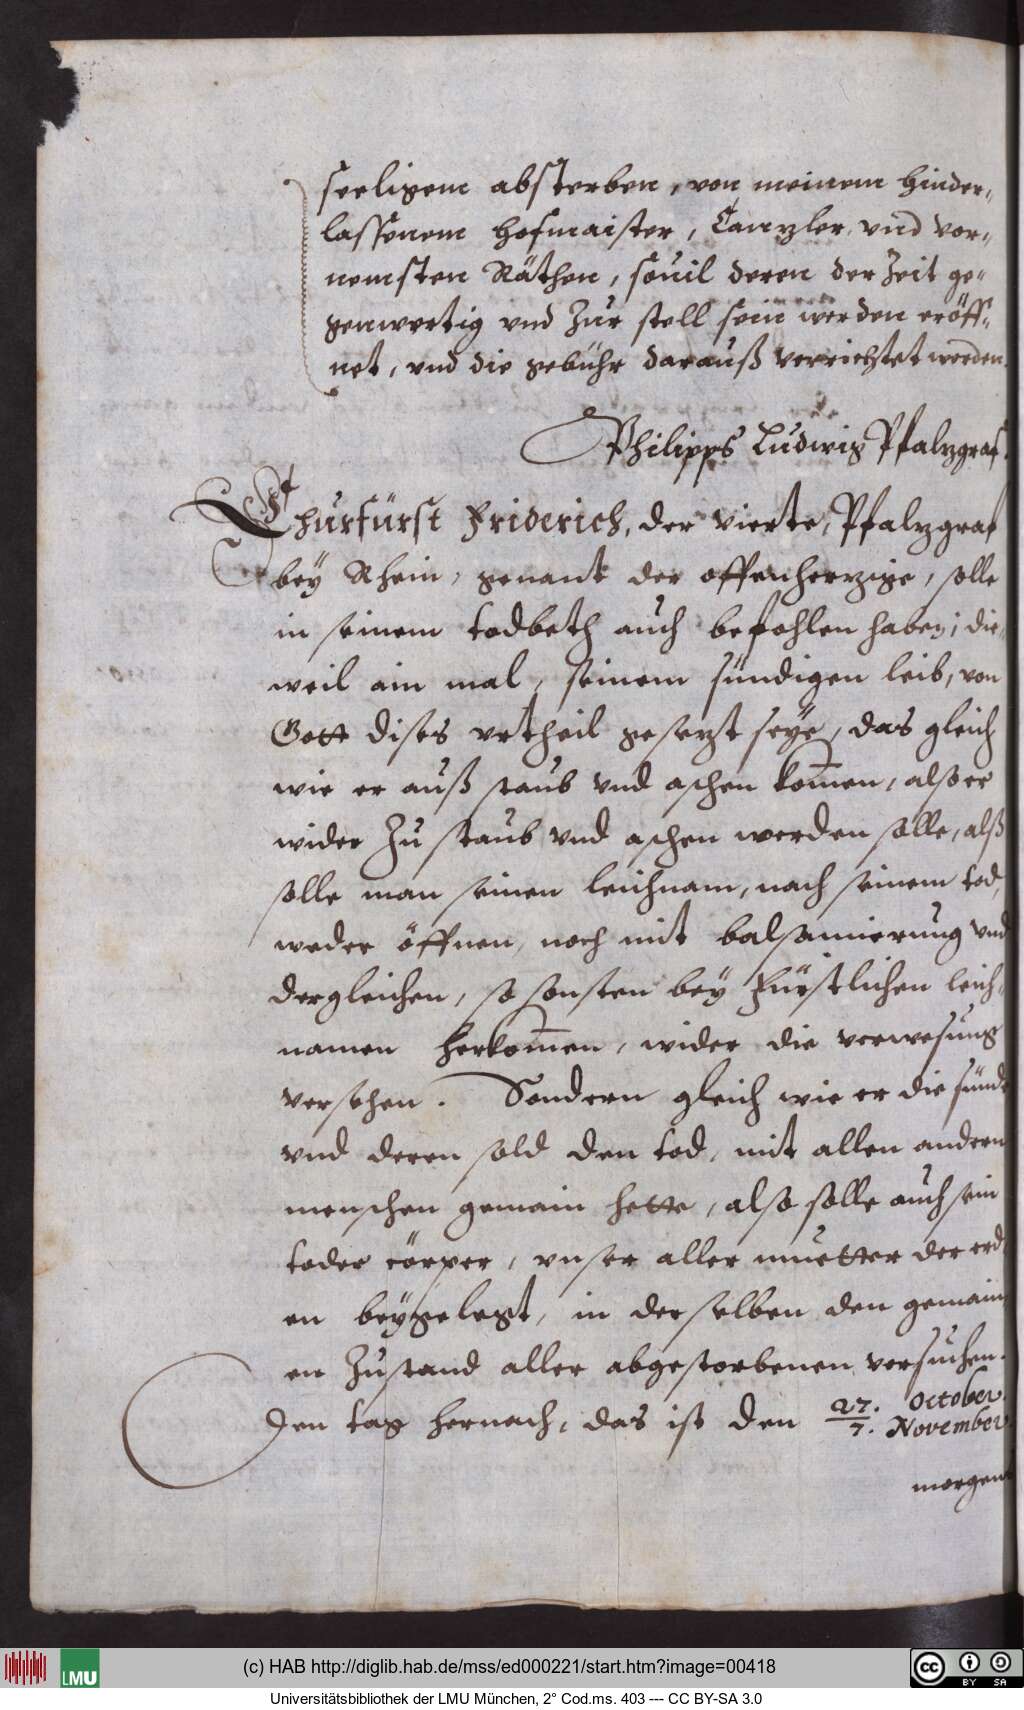 seeligem absterben, von meinem hinder-
lassenem hofmaister, Canzler, vnd vor-
nemsten Räthen, souil deren der Zeit ge-
genwertig vnd Zur stell sein werden eröff-
net, vnd die gebühr darauß verrichtet werden.
Philipps Ludwig Pfalzgraf.
Churfürst Friderich, der vierte, Pfalzgraf
bey Rhein, genant der offenherzige, solle
in seinem todbeth auch befohlen haben; die-
weil ain mal, seinem sündigen leib, von
Gott dises vrtheil gesezt seye, das gleich
wie er auß staub vnd aschen komen, also er
wider Zu staub vnd aschen werden solle, alß
solle man seinen leichnam, nach seinem tod,
weder öffnen, noch mit balsamierung vnd
dergleichen, so sonsten bey Fürstlichen leich-
namen herkomen, wider die verwesung
versehen. Sondern gleich wie er die sünde
vnd deren sold den tod, mit allen andern
menschen gemain hette, also solle auch sein
toder cörper, vnser aller muetter der erd
en beygelegt, in derselben den gemain
en Zustand aller abgestorbenen versuchen.
Den tag hernach, das ist den 27. October
7. November
morgens
(c) HAB http://diglib.hab.de/mss/ed000221/start.htm?image=00418
LMU
cc BY SA
Universitätsbibliothek der LMU München, 2° Cod.ms. 403 --- CC BY-SA 3.0